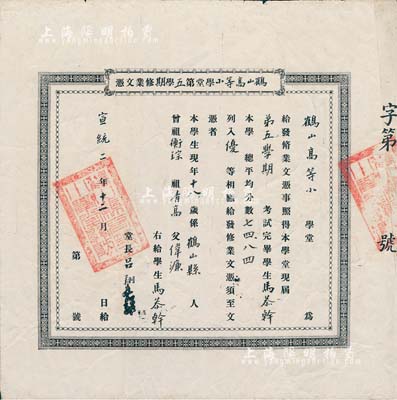 上海阳明拍卖
鶴山高等小學堂第五學期修業文憑
鶴山高等小學堂為
給發修業文憑事照得本學堂現屆
第五學期考試完畢學生馬荼幹
本學總平均分數七四八四
列入優等相應給發修業文憑須至文
憑者
本學生現年歲係鶴山縣人
曾祖衡琮祖壽高父偉濂
右給學生馬荼幹
堂長呂
宣統二年十二月日給
第號
字第號
上海阳明拍卖